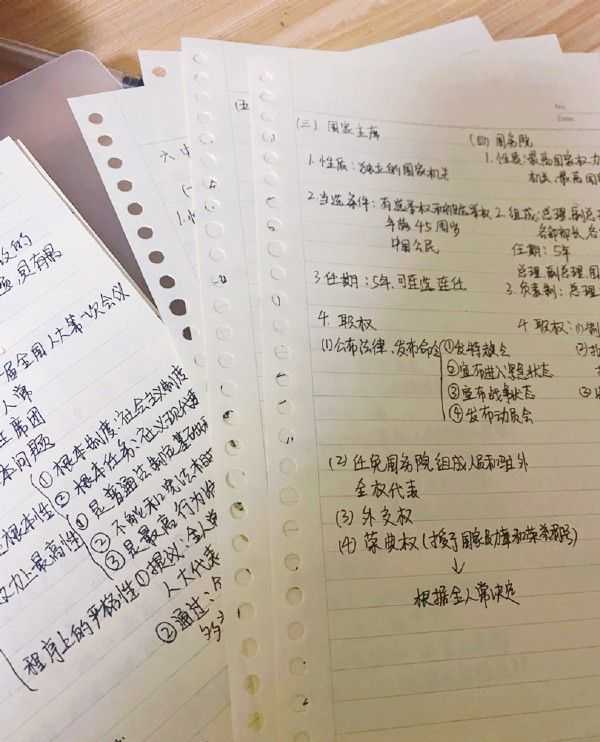 (三) 国家主席
1. 性质：独立的国家机关
2. 当选条件：有选举权和被选举权
年龄45周岁
中国公民
3. 任期：5年，可连选连任
4. 职权
(1) 公布法律、发布命令
①发特赦令
②宣布进入紧急状态
③宣布战争状态
④发布动员令
(2) 任免国务院组成人员和驻外
全权代表
(3) 外交权
(4) 荣典权(授予国家勋章和荣誉称号)
↓
根据全人常决定
(四) 国务院
1. 性质：最高国家权力
机关、最高国
2. 组成：总理、副总
各部部长、各
任期：5年
总理、副总理、国
3. 负责制：总理
4. 职权：(1)制
(五
六
届全国人大第一次会议
人常
主席团
本问题
根本性
①根本制度：社会主义制度
②根本任务：社义现代表
力上最高性
①是普通法制定基础
②不能和宪法有
③是最高行为
程序上的严格性
①提议：全人常
人大代表
②通过：